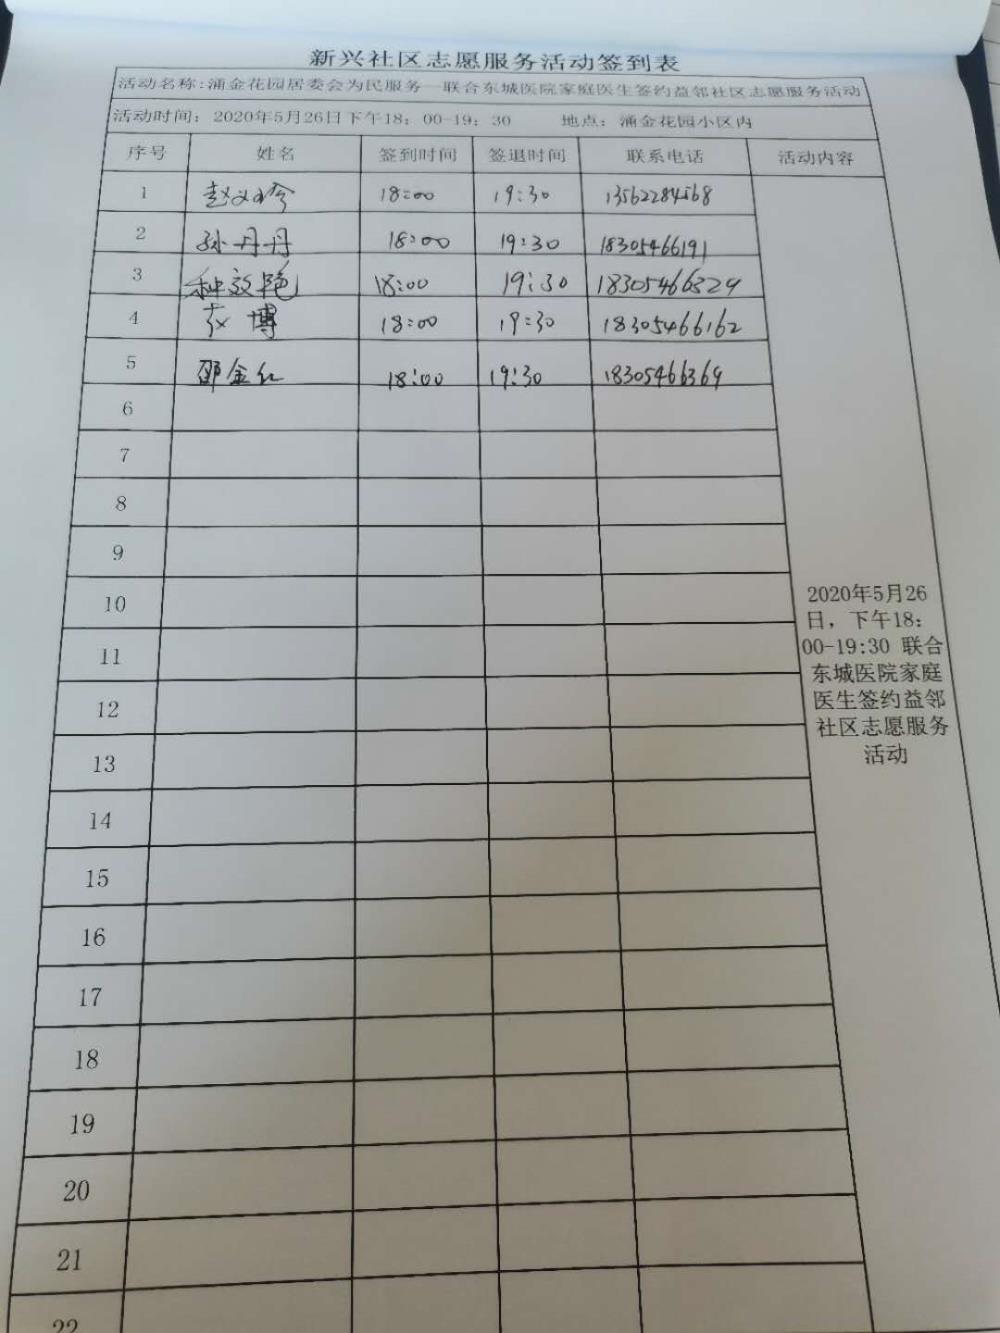 新兴社区志愿服务活动签到表
活动名称:涌金花园居委会为民服务—联合东城医院家庭医生签约益邻社区志愿服务活动
活动时间：2020年5月26日下午18：00-19：30 地点：涌金花园小区内
序号 姓名 签到时间 签退时间 联系电话 活动内容
1 18:00 19:30 13562284568
2 孙丹丹 18:00 19:30 18305466191
3 种效艳 18:00 19:30 18305466324
4 博 18:00 19:30 18305466162
5 邵金红 18:00 19:30 18305466369
6
7
8
9
10
11
12
13
14
15
16
17
18
19
20
21
22
2020年5月26
日，下午18：
00-19:30 联合
东城医院家庭
医生签约益邻
社区志愿服务
活动